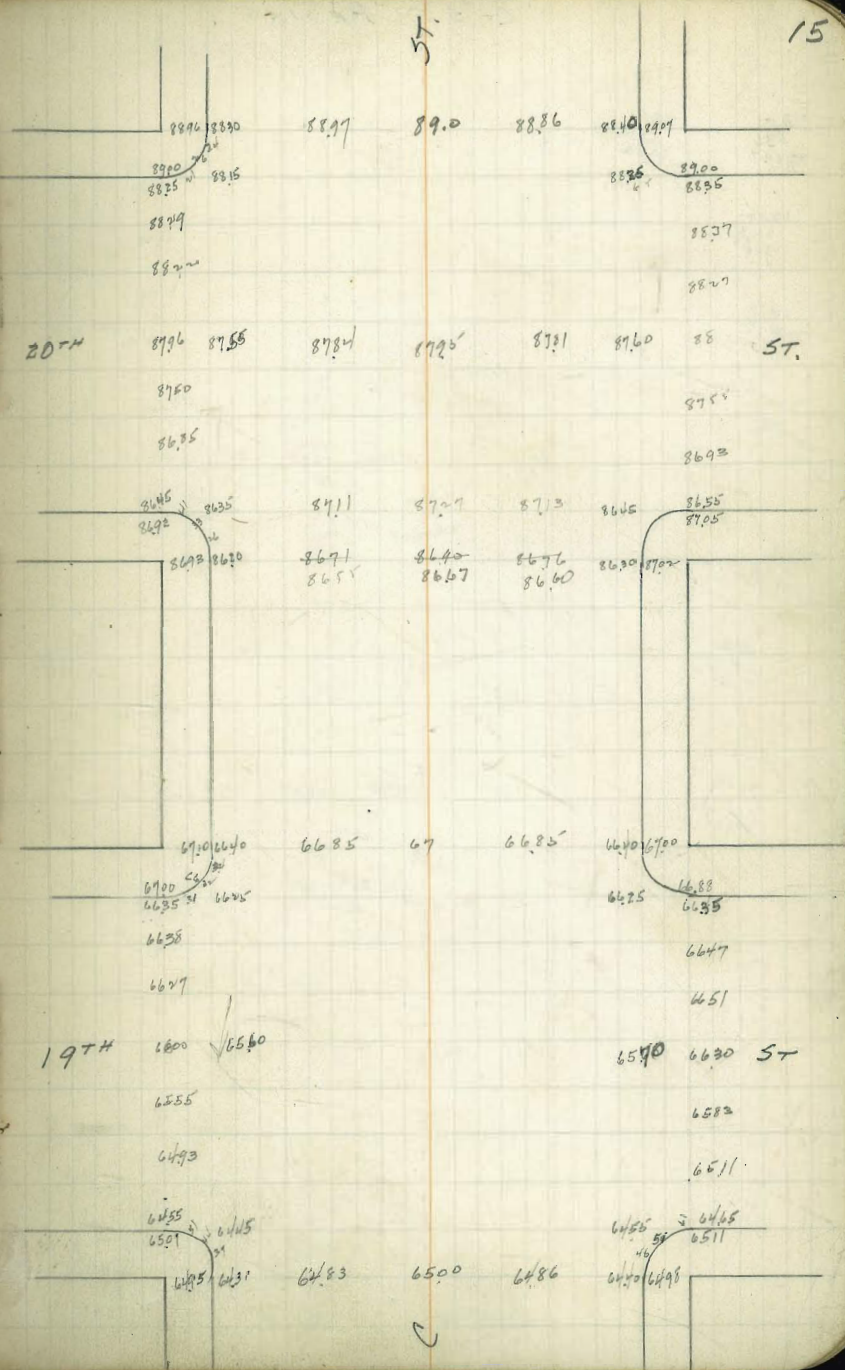 15
ST.
8896 8830 8897 89.0 8886 8840 8907
8900 8900
8825 8815 8825 8835
8829 8837
8822 8827
20TH 8796 8755 8784 8795 8781 8760 88 ST.
8750 8755
8635 8693
8645 8635 8711 8727 8713 8645 8655
8692 8705
8693 8620 8671 8690 8676 8630 8702
8655 8667 8660
6710 6640 6685 67 6685 6640 6700
6700 6688
6635 31 6625 6625 6635
6638 6647
6627 6651
19TH 6600 6560 6570 6630 ST
6555 6583
6493 6511
6455 6445 6455 6465
6507 6511
6495 6431 6483 6500 6486 6440 6498